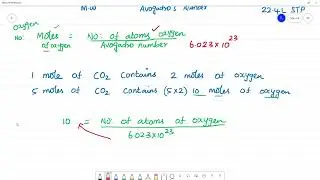 M.W Avogadro's Number 22.4L STP
oxygen
No: Moles = No: of atoms oxygen
of oxygen Avogadro number 6.023x10^23
1 mole of CO2 contains 2 moles of oxygen
5 moles of CO2 contains (5x2) 10 moles of oxygen
10 = No of atoms of oxygen
6.023x10^23